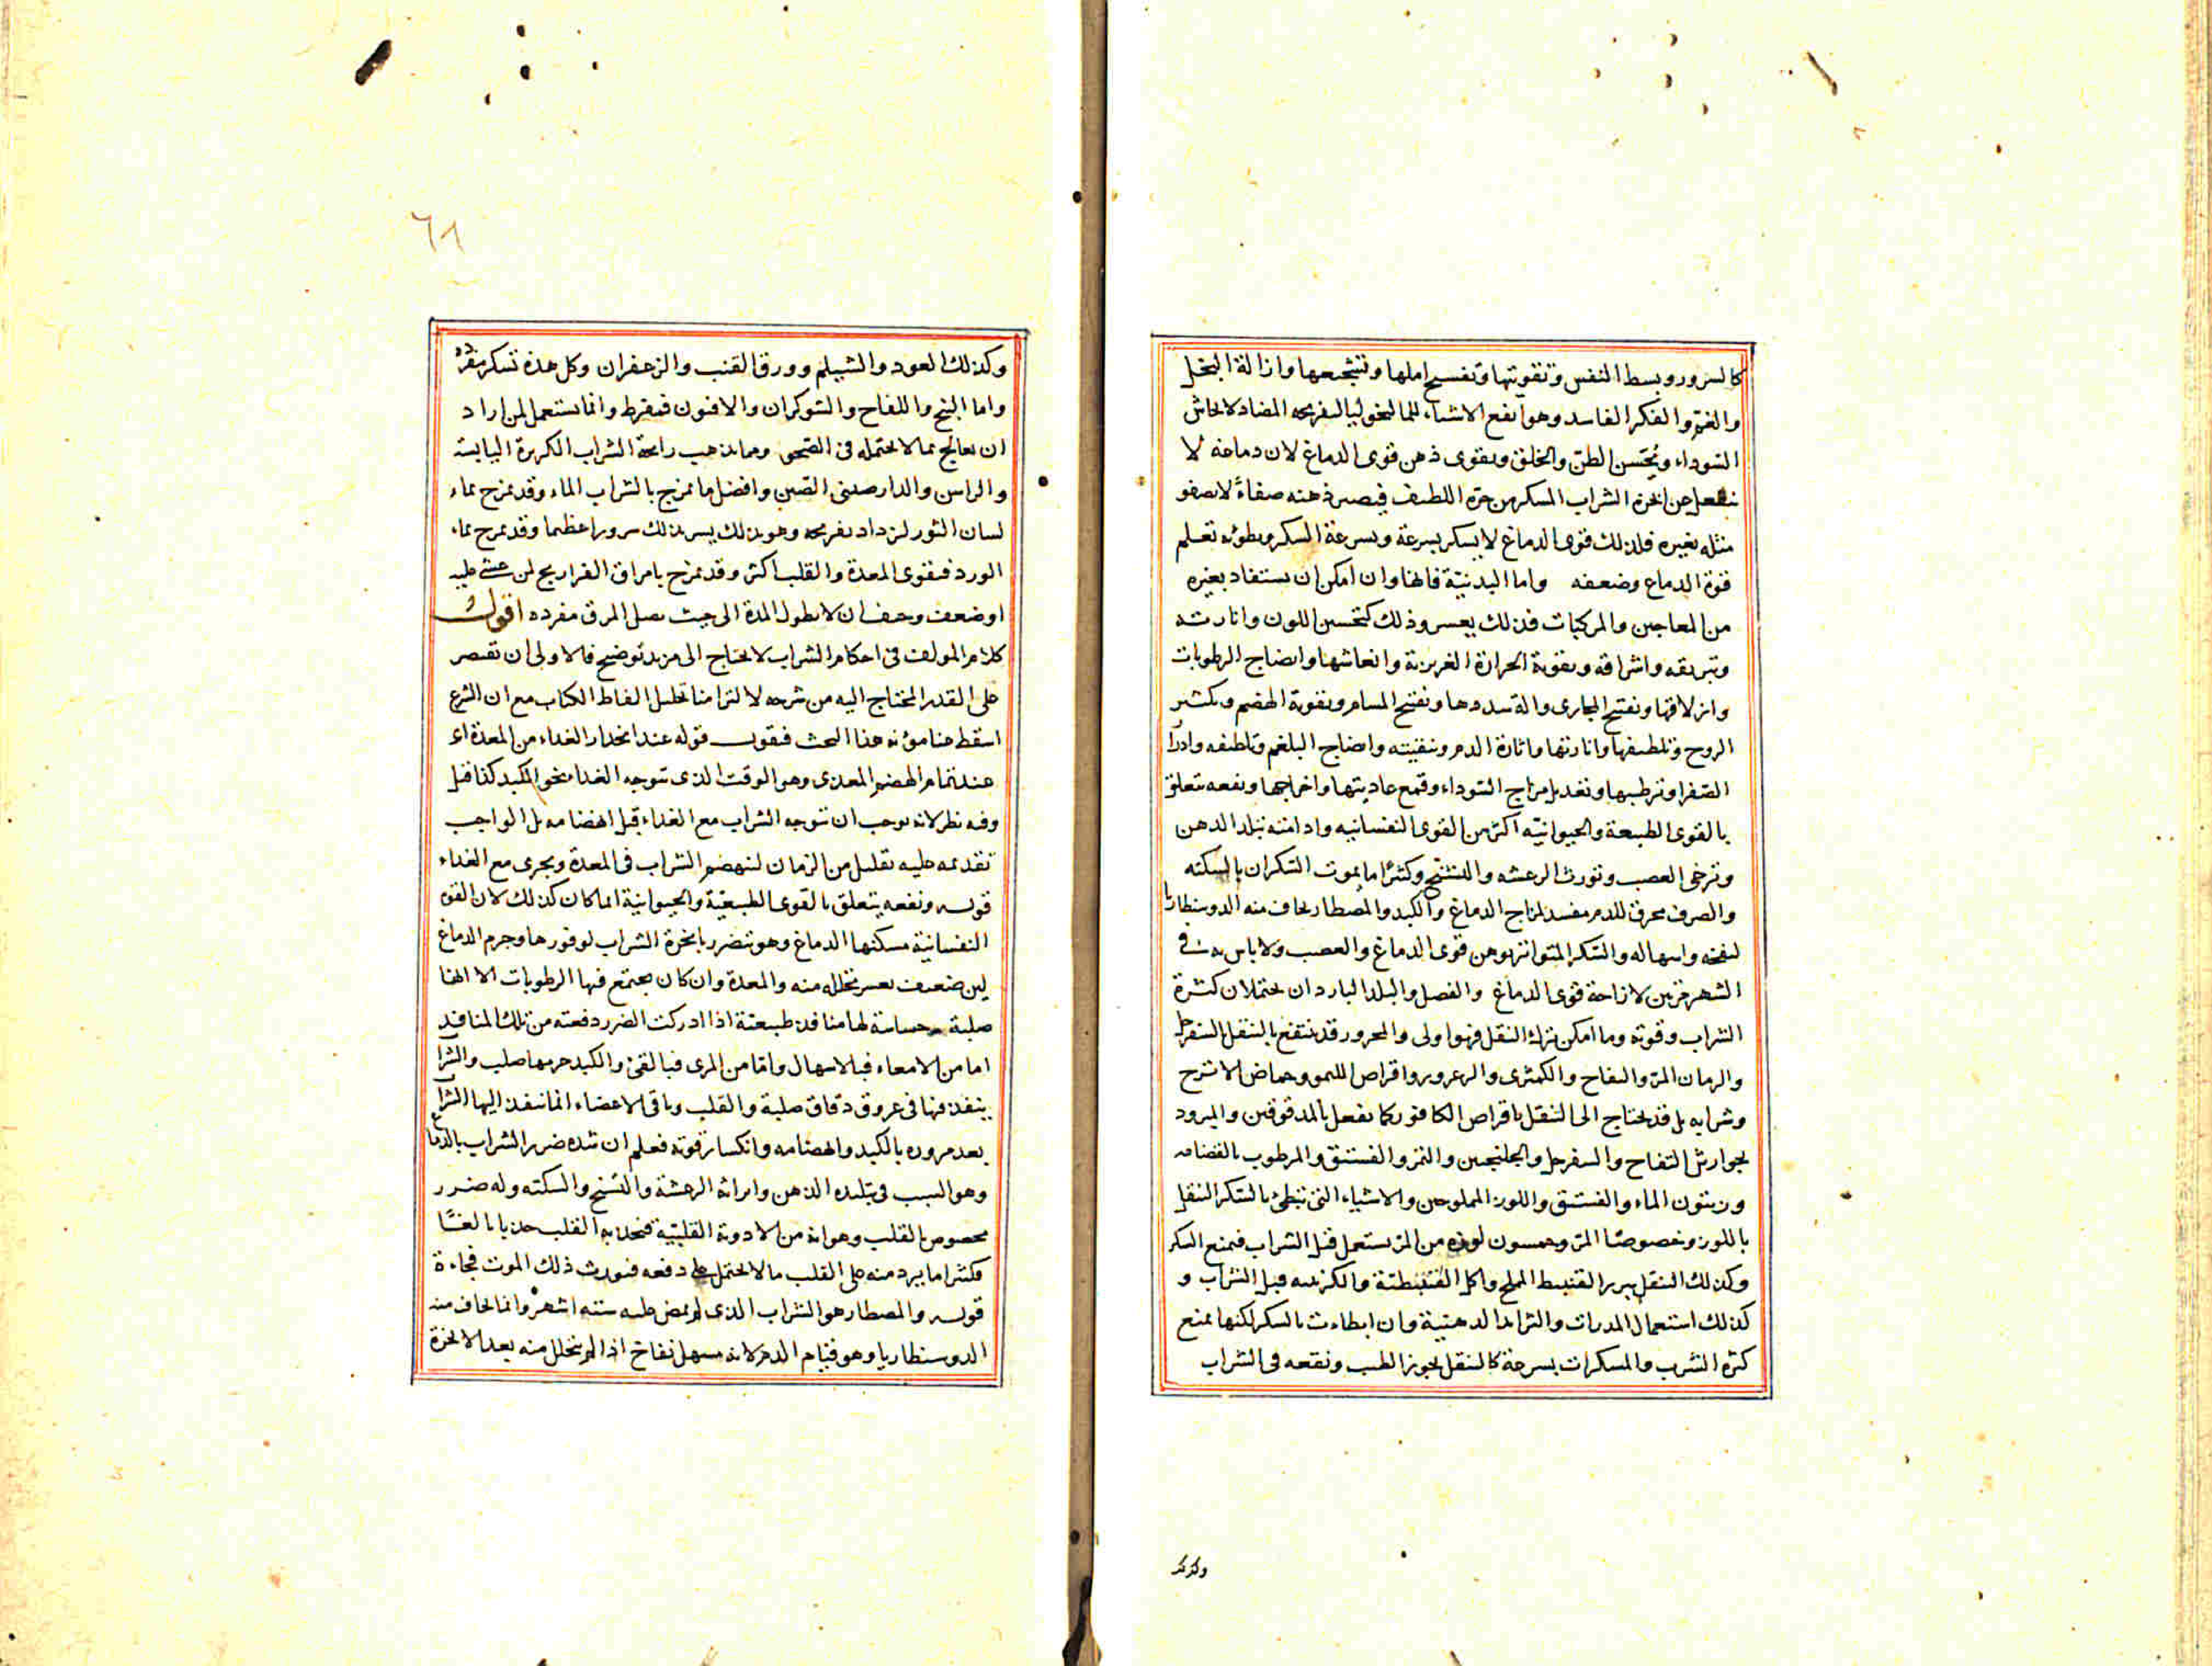 كالسرور وبسط النفس وتقويتها وتفسيح املها وتشجيعها وازالة البخل
والغم والفكر الفاسد وهو انفع الاشياء للمالنخوليا لتفريحه المضاد لايحاش
السوداء ويحسن الظن والخلق ويقوى ذهن قوى الدماغ لان دماغه لا
ينفعل عن ابخرة الشراب المسكر من حره اللطيف فيصير ذهنه صفاءً لا يصفو
مثله بغيره فلذلك قوى الدماغ لا يسكر بسرعة وبسرعة السكر وبطؤه تعلم
قوة الدماغ وضعفه واما البدنية فانها وان امكن ان يستفاد بغيره
من المعاجين والمركبات فذلك يعسر وذلك كتحسين اللون وانارته
وتبريقه واشراقه وتقوية الحرارة الغريزية وانعاشها وانضاج الرطوبات
وازلاقها وتفتيح المجارى وازالة سددها وتفتيح المسام وتقوية الهضم وتكثير
الروح وتلطيفها وانارتها واثارة الدم وتنقيته وانضاج البلغم وتلطيفه وادرار
الصفرا وترطيبها وتعديل مزاج السوداء وقمع عاديتها واخراجها ونفعه يتعلق
بالقوى الطبيعة والحيوانية اكثر من القوى النفسانيه وادامته تبلد الذهن
وترخى العصب وتورث الرعشه والتشنج وكثيرا ما يموت السكران بالسكته
والصرف محرق للدم مفسد لمزاج الدماغ والكبد والمصطار يخاف منه الدوسنطاريا
لنفخه واسهاله والسكر المتواتر يوهن قوى الدماغ والعصب ولا باس به فى
الشهر مرتين لازاحة قوى الدماغ والفصل والبلد البارد ان يحتملان كثرة
الشراب وقوته وما امكن ترك النقل فهو اولى والمحرور قد ينتفع بالنقل بالسفرجل
والرمان المز والتفاح والكمثرى والزعرور واقراص الليمو وحماض الاترج
وشرابه بل قد يحتاج الى النقل باقراص الكافور كما يفعل بالمدقوقين والمبرود
بجوارش التفاح والسفرجل والجلنجبين والتمر والفستق والمرطوب بالقضامه
وزيتون الماء والفستق واللوز المملوحين والاشياء التى تبطئ بالسكر النقل
باللوز وخصوصًا المر وخمسون لوزه من المر يستعمل قبل الشراب فيمنع السكر
وكذلك النقل ببزر القنبيط المملح واكل القنبيطية والكرنبيه قبل الشراب و
كذلك استعمال المدرات والثرايد الدهنية وان ابطاءت بالسكر لكنها يمنع
كثرة الشرب والمسكرات بسرعة كالنقل بجوز الطيب ونقعه فى الشراب
وكذلك
٦١
وكذلك العود والشيلم وورق القنب والزعفران وكل هذه تسكر مفردة
واما البنج واللفاح والشوكران والافيون فمفرط وانما يستعمل لمن اراد
ان يعالج بما لا يحتمله فى الصحو ومما يذهب رايحة الشراب الكزبرة اليابسة
والراسن والدارصينى الصين وافضل ما يمزج بالشراب الماء وقد يمزج بماء
لسان الثور ليزداد تفريحه وهو بذلك يسر بذلك سرورا عظيما وقد يمزج بماء
الورد فيقوى المعدة والقلب اكثر وقد يمزج بامراق الفراريج لمن غشى عليه
او ضعف وخيف ان لا يطول المدة الى حيث يصل المرق مفرده اقول
كلام المولف فى احكام الشراب لا يحتاج الى مزيد توضيح فالاولى ان نقصر
على القدر المحتاج اليه من شرحه لا لتزامنا تحليل الفاظ الكتاب مع ان الشرع
اسقط عنا مؤنه هذا البحث فنقول قوله عند انحدار الغداء من المعدة اى
عند تمام الهضم المعدى وهو الوقت الذى يتوجه الغدا نحو الكبد كذا قيل
وفيه نظر لانه يوجب ان يتوجه الشراب مع الغداء قبل انهضامه بل الواجب
تقديمه عليه بقليل من الزمان لينهضم الشراب فى المعدة ويجرى مع الغداء
قوله ونفعه يتعلق بالقوى الطبيعية والحيوانية انما كان كذلك لان القوى
النفسانية مسكنها الدماغ وهو يتضرر بابخرة الشراب لوفورها وجرم الدماغ
لين ضعيف يعسر تحلله منه والمعدة وان كان يجتمع فيها الرطوبات الا انها
صلبة حساسة لها منافذ طبيعية اذا ادركت الضرر دفعته من تلك المنافذ
اما من الامعاء فبالاسهال واما من المرى فبالقئ والكبد جرمها صلب والشراب
ينفذ فيها فى عروق دقاق صلبة والقلب وباقى الاعضاء انما ينفذ اليها الشراب
بعد مروره بالكبد وانهضامه وانكسار قوته فعلم ان شدة ضرر الشراب بالدماغ
وهو السبب فى تبليده الذهن وايراثه الرعشة والتشنج والسكته وله ضرر
مخصوص بالقلب وهو انه من الادوية القلبيّة فيجذبه القلب جذبا بالغًا
فكثيرا ما يرد منه على القلب ما لا يحتمل على دفعه فيورث ذلك الموت فجاءة
قوله والمصطار هو الشراب الذى لم يمض عليه ستة اشهر وانما يخاف منه
الدوسنطاريا وهو قيام الدم لانه مسهل نفاخ اذا لم يتحلل منه بعد الابخرة